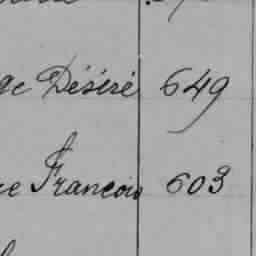 ge Désiré 649
ce François 603